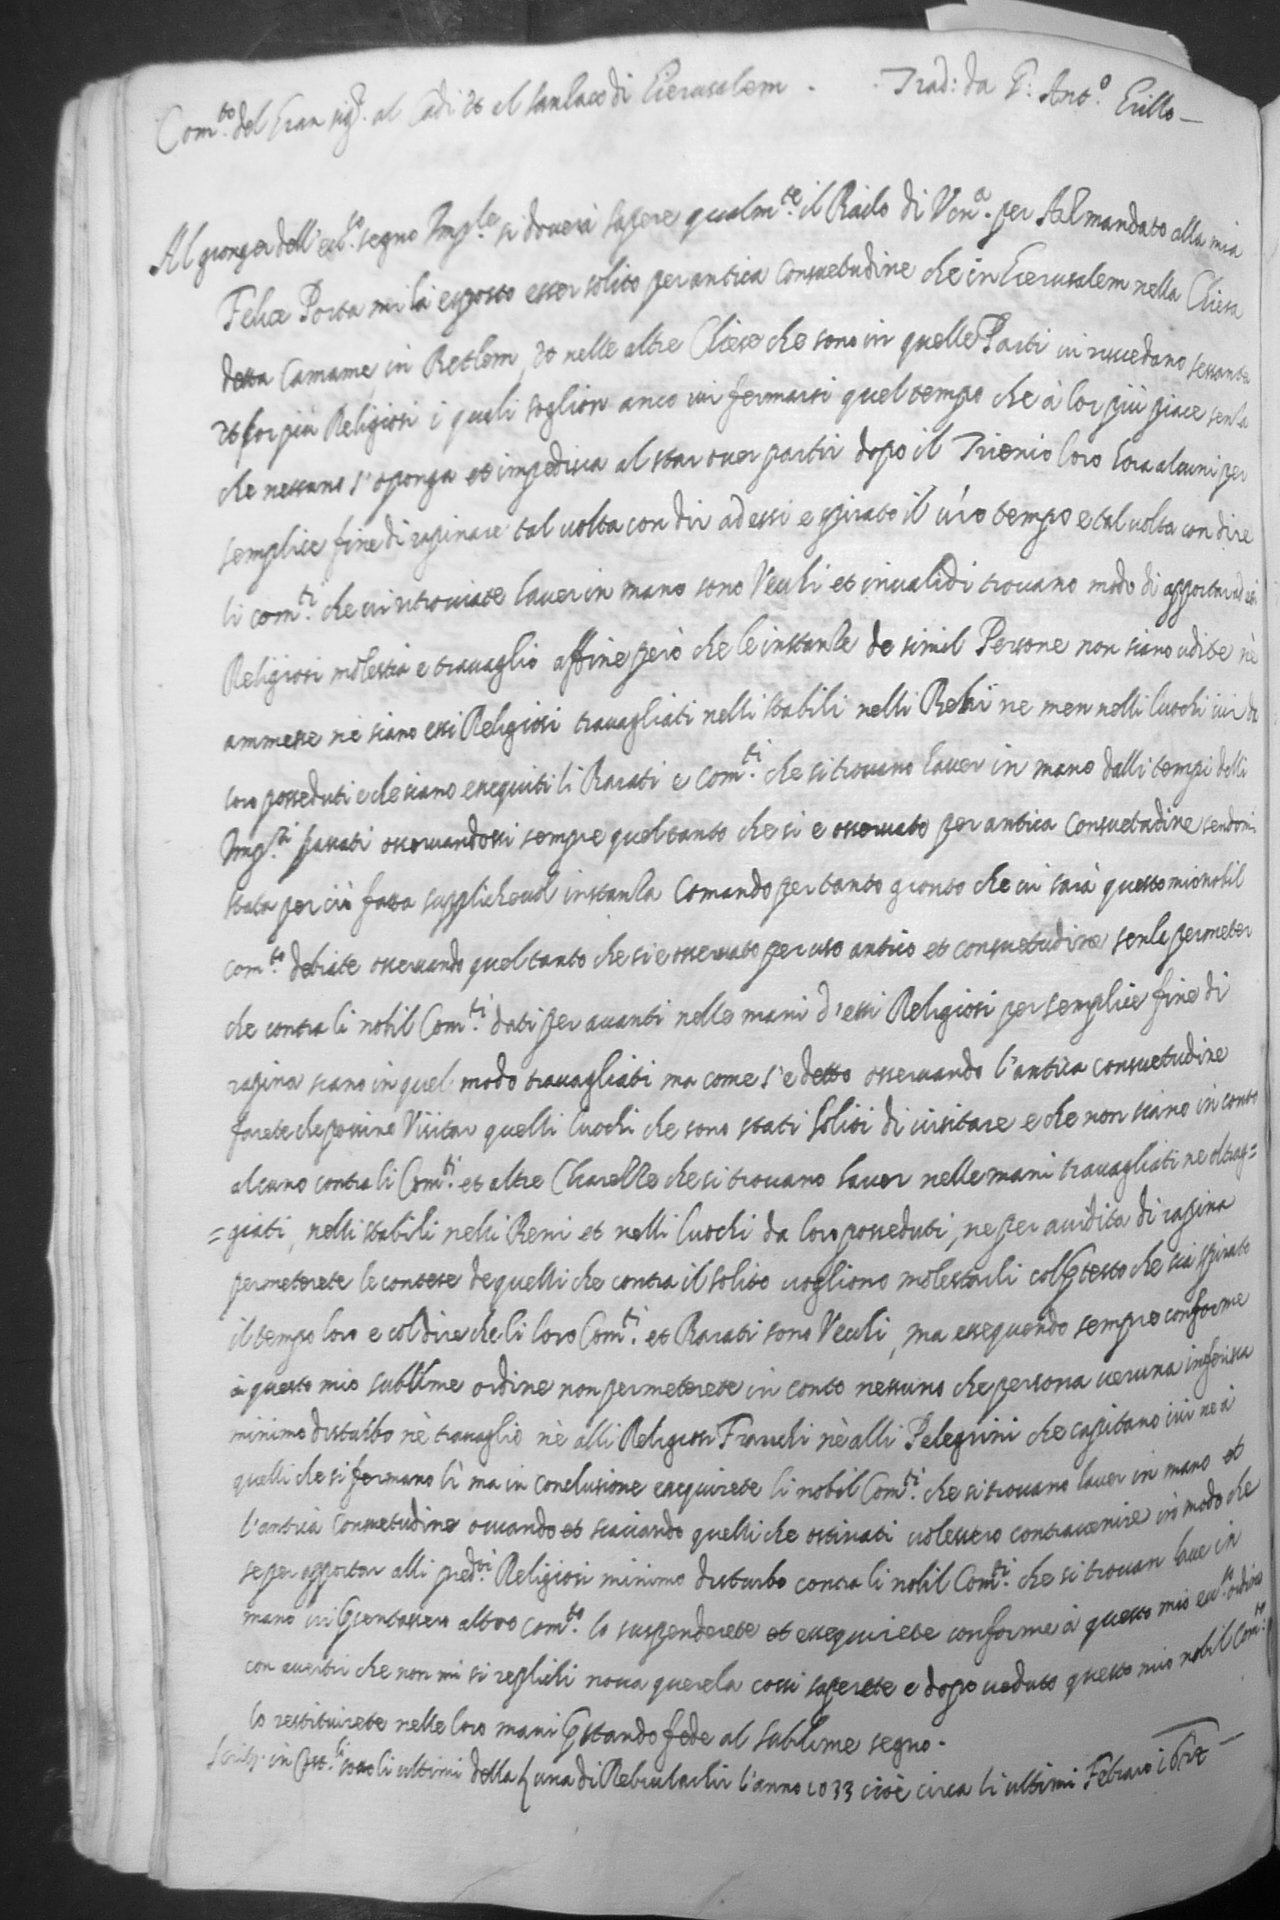 Com.to del Gran sig.r al Cadi et al Sanzacco di Gierusalem . Trad: da G: Ant.o Grillo –
Al gionger dell' ecc.so segno Imp.le si doverà sapere qualm.te il Bailo di Ven.a per S. M. mandato alla mia
Felice Porta mi hà esposto esser solito per antica consuetudine che in Gierusalem nella Chiesa
detta Camame, in Betlem, et nelle altre Chiese che sono in quelle Parti vi risiedano sessanta
et for più Religiosi i quali soglion anco ivi fermarsi quel tempo che à lor più piace senza
che nessuno s'oponga et impedisca al star over partir dopo il Trienio loro hora alcuni per
semplice fine di rapinare tal volta con dir ad essi e spirato il v'ro tempo e tal volta con dire
li com.ti che vi ritrovate haver in mano sono Vechi et invalidi trovano modo di apportar ad essi
Religiosi molestia e travaglio affine però che le instanze de simil Persone non siano udite nè
ammesse nè siano essi Religiosi travagliati nelli stabili nelli Beni ne men nelli luochi ivi da
loro posseduti e che siano exequiti li Barati e Com.ti che si trovano haver in mano dalli tempi delli
Imp.ri passati osservandossi sempre quel tanto che si e osservato per antica consuetudine sendomi
stata per ciò fatta supplichevol instanza Comando per tanto gionto che vi sarà questo mio nobil
com.to debiate osservando quel tanto che si e osservato per uso antico et consuetudine senza permeter
che contra li nobil Com.ti dati per avanti nelle mani d'essi Religiosi per semplice fine di
rapina siano in quel modo travagliati ma come s'e detto osservando l'antica consuetudine
farete che possino Visitar quelli luochi che sono stati soliti di visitare e che non siano in conto
alcuno contra li Com.ti et altre Charette che si trovano haver nelle mani travagliati ne oltrag=
=giati, nelli stabili nelli Beni et nelli luochi da loro posseduti, ne per avidita di rapina
permeterete le contese de quelli che contra il solito vogliono molestarli col p'testo che sia spirato
il tempo loro e col dire che li loro Com.ti et Barati sono Vechi, ma essequendo sempre conforme
à questo mio sublime ordine non permeterete in conto nessuno che persona veruna inferisca
minimo disturbo nè travaglio nè alli Religiosi Franchi nè alli Pelegrini che capitano ivi ne à
quelli che si fermano lì ma in conclusione exequirete li nobil Com.ti che si trovano haver in mano et
l'antica consuetudine ovando et scaciando quelli che ostinati volessero contravenire in modo che
se per apportar alli pred.ti Religiosi minimo disturbo contra li nobil Com.ti che si trovan haver in
mano vi p'sentassero altro com.to lo suspenderete et essequirete conforme à questo mio ecc.so ordine
con avertir che non mi si replichi nova querela cossi saperete e dopo veduto questo mio nobil Com.to
lo restituirete nelle loro mani p'stando fede al sublime segno .
Scritt. in Cost.li li ultimi della Luna di Rebiulachir l'anno 1033 cioè circa li ultimi Febraro